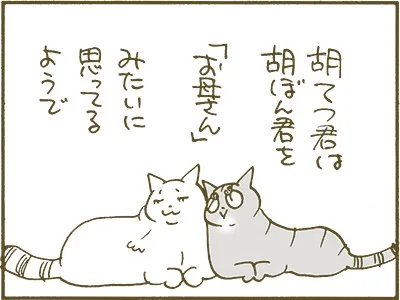 胡てつ君は
胡ぼん君を
「お母さん」
みたいに
思ってる
ようで